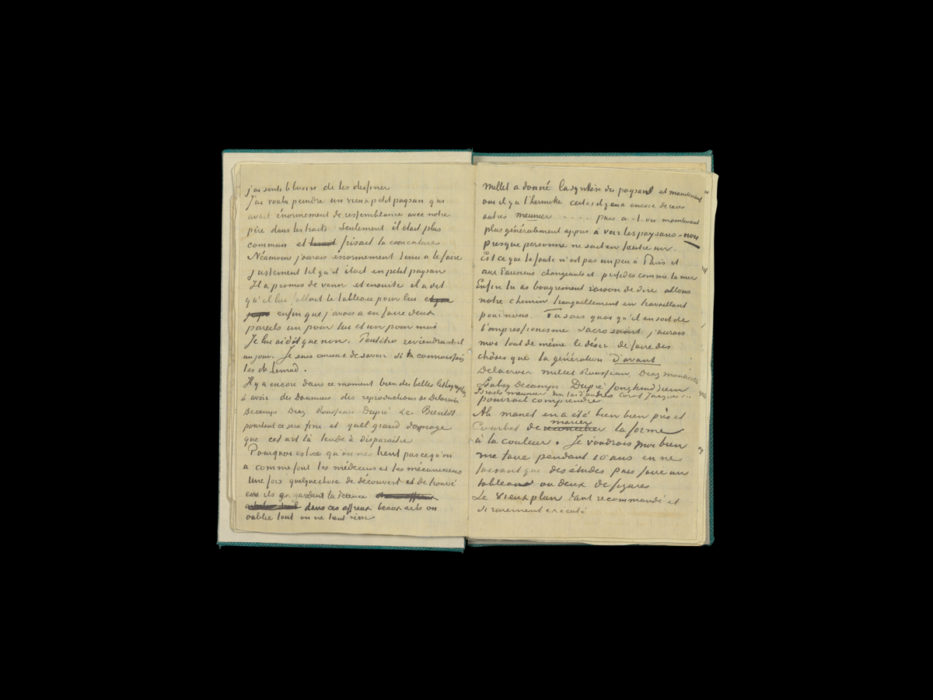 j'ai senti le besoin de les dessiner
J'ai voulu peindre un vieux petit paysan qui
avait énormement de ressemblance avec notre
père dans les traits. Seulement il était plus
commun et frisait la caricature
Néamoins j'aurais enormement tenu à le faire
justement tel qu'il était en petit paysan
Il a promis de venir et ensuite il a dit
qu'il lui fallait le tableau pour lui
enfin que j'avais a en faire deux
pareils un pour lui et un pour moi
Je lui ai dit que non. Peutêtre reviendra-t-il
un jour. Je suis curieux de savoir si tu connaissais
les de Lemud.
Il y a encore dans ce moment bien des belles lithographies
à avoir des Daumier des reproductions de Delacroix
Decamps Diaz Rousseau Dupré &c. Bientôt
pourtant ce sera fini et quel grand dommage
que cet art là tende à disparaitre
Pourquoi est ce qu'on ne tient pas ce qu'on
a comme font les médecins et les mécaniciens
Une fois quelque chose de découvert et de trouvé
eux ils en gardent la science
dans ces affreux beaux arts on
oublie tout on ne tient rien
Millet a donné la synthèse du paysan et maintenant
oui il y a Lhermitte certes il y a encore de rares
autres meunier . . . . . . puis a-t-on maintenant
plus généralement appris à voir les paysans - non
presque personne ne sait en foutre un.
Est ce que la faute n'est pas un peu à Paris et
aux Parisiens changeants et perfides comme la mer
Enfin tu as bougrement raison de dire allons
notre chemin tranquillement en travaillant
pour nous. Tu sais quoi qu'il en soit de
l'impressionisme sacro saint j'aurais
moi tout de même le désir de faire des
choses que la génération d'avant
Delacroix Millet Rousseau Diaz Monticelli
Isabey Decamps Dupré Jongkind Ziem
Israels meunier un tas d'autres Corot Jacques &c
pourrait comprendre
Ah manet en a été bien bien près et
Courbet de marier la forme
à la couleur. Je voudrais moi bien
me taire pendant 10 ans en ne
faisant que des études puis faire un
tableau ou deux de figures
Le vieux plan tant recommandé et
si rarement executé